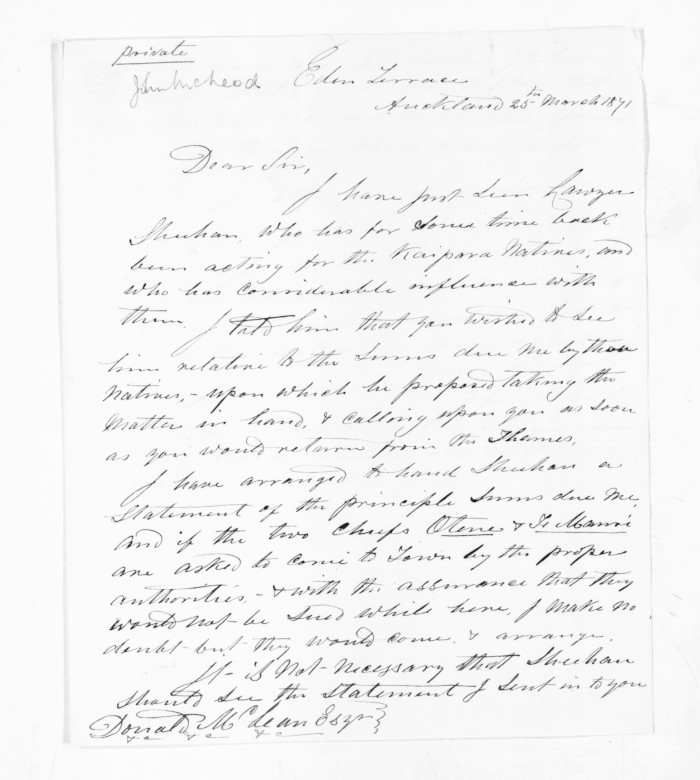 private
John McLeod
Eden Terrace
Auckland 25th March 1871
Dear Sir,
I have just seen Lawyer
Sheehan, who has for some time back
been acting for the Kaipara Natives, and
who has considerable influence with
them. I told him that you wished to see
him relative to the sums due me by those
Natives, - upon which he proposed taking the
Matter in hand, & calling upon you as soon
as you would return from the Thames.
I have arranged to hand Sheehan a
Statement of the principle sums due me,
and if the two Chiefs Otene & Te Manri
are asked to come to Town by the proper
authorities, - & with the assurance that they
would not be sued while here, I make no
doubt but they would come & arrange.
It is Not Necessary that Sheehan
should see the Statement I sent in to you
Donald McLean Esqr
&c &c &c